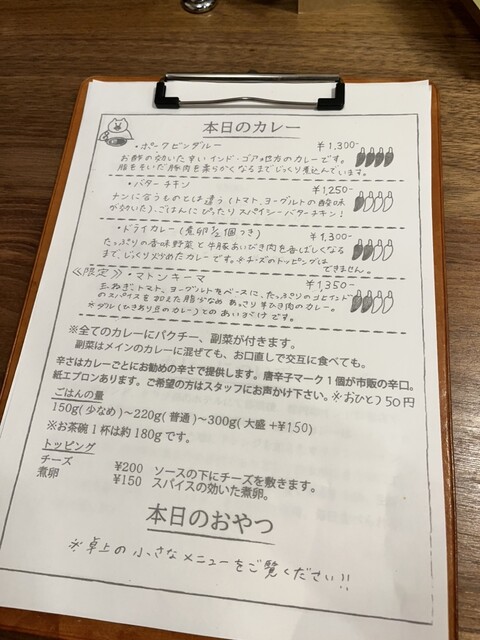 本日のカレー
・ポークビンダルー ¥1,300-
お酢の効いた辛いインド・ゴア地方のカレーです。
脂をそいだ豚肉を柔らかくなるまでじっくり煮込んでいます。
・バターチキン ¥1,250-
ナンに合うものとは違う（トマト、ヨーグルトの酸味
が効いた）ごはんにぴったりスパイシーバターチキン!
・ドライカレー（煮卵½個つき） ¥1,300-
たっぷりの香味野菜と牛豚あいびき肉を香ばしくなる
まで、じっくり炒めたカレーです。※チーズのトッピングは
できません。
≪限定≫・マトンキーマ ¥1,350-
玉ねぎ、トマト、ヨーグルトをベースに、たっぷりのゴマとインド
のスパイスを加えた脂少なめ あっさり羊ひき肉のカレー。
※ダル（ひきわり豆のカレー）とのあいがけです。
※全てのカレーにパクチー、副菜が付きます。
副菜はメインのカレーに混ぜても、お口直しで交互に食べても。
辛さはカレーごとにお勧めの辛さで提供します。唐辛子マーク1個が市販の辛口。
紙エプロンあります。ご希望の方はスタッフにお声かけ下さい。※おひとつ50円
ごはんの量
150g(少なめ)〜220g(普通)〜300g(大盛+¥150)
※お茶碗1杯は約180gです。
トッピング
チーズ ¥200 ソースの下にチーズを敷きます。
煮卵 ¥150 スパイスの効いた煮卵。
本日のおやつ
※卓上の小さなメニューをご覧ください!!